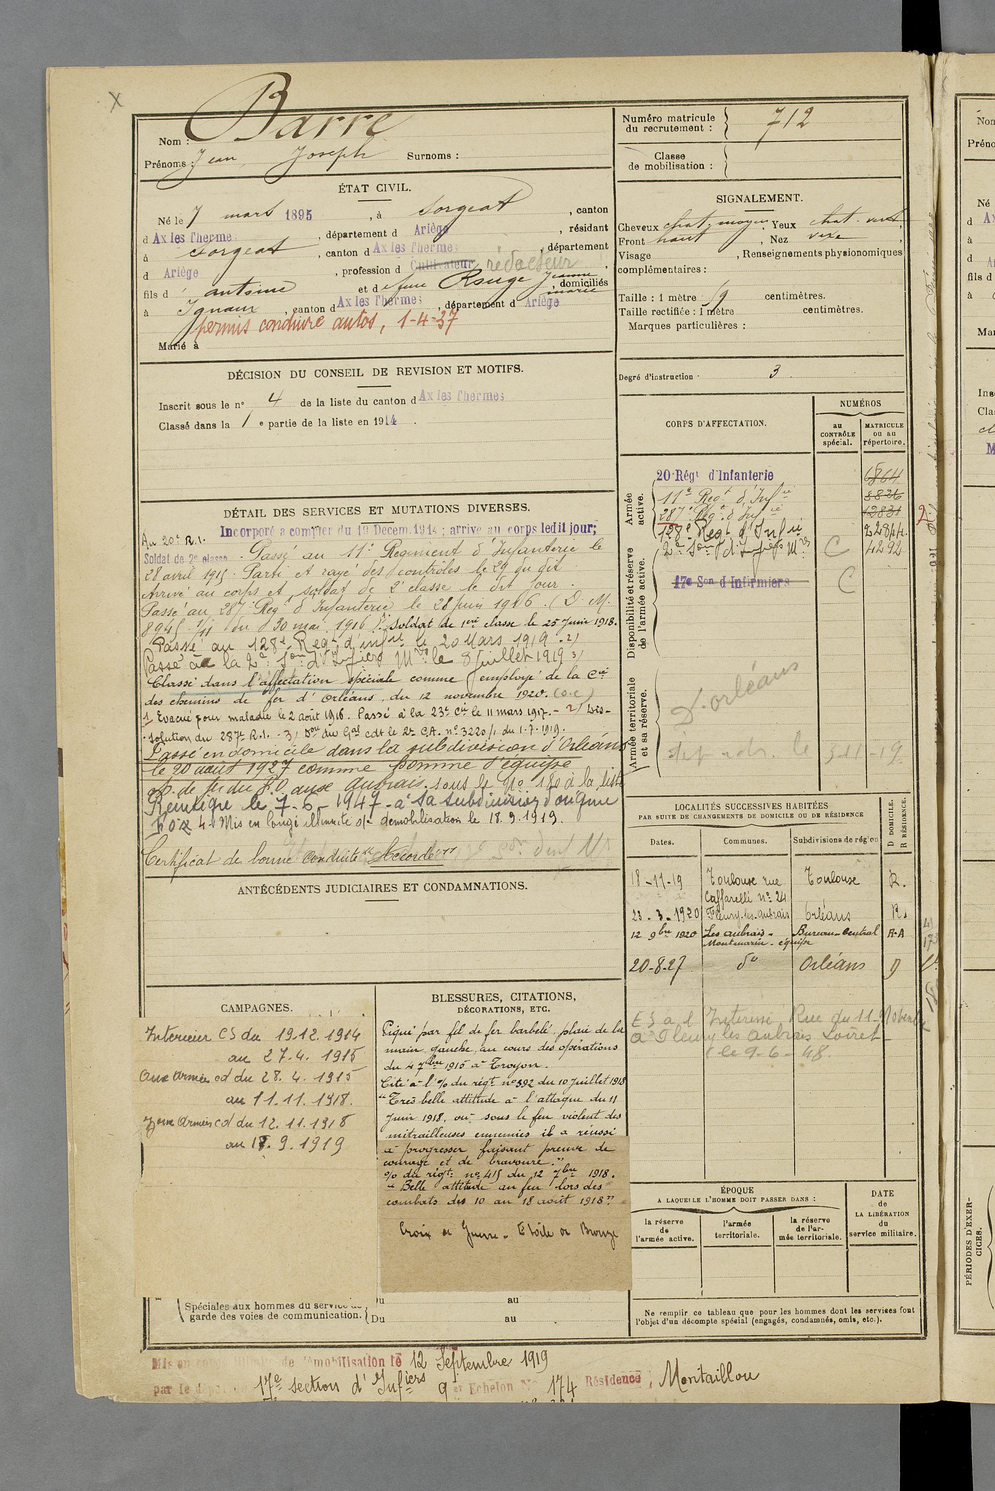 X
Nom : Barre
Prénoms : Jean Joseph Surnoms :
Numéro matricule
du recrutement : 712
Classe
de mobilisation :
ÉTAT CIVIL.
Né le 7 mars 1895, à Sorgeat, canton
d Ax les Thermes, département d Ariège, résidant
à Sorgeat, canton d Ax les Thermes, département
d Ariège, profession d Cultivateur rédacteur,
fils d Antoine et de feue Rouge Jeanne Marie, domiciliés
à Ignaux, canton d Ax les Thermes, département d Ariège
permis conduire autos, 1-4-37
Marié à
SIGNALEMENT.
Cheveux chat. moyen Yeux chat. verts,
Front haut, Nez vexe,
Visage , Renseignements physionomiques
complémentaires :
Taille : 1 mètre 59 centimètres.
Taille rectifiée : 1 mètre centimètres.
Marques particulières :
Degré d'instruction 3
DÉCISION DU CONSEIL DE REVISION ET MOTIFS.
Inscrit sous le n° 4 de la liste du canton d Ax les Thermes
Classé dans la 1e partie de la liste en 1914.
CORPS D'AFFECTATION.
NUMÉROS
au
CONTRÔLE
spécial.
MATRICULE
ou au
répertoire.
Armée
active.
20 Régt d'Infanterie
11e Regt d'Infie
287e Regt d'Infie
128e Regt d'Infie
2e Son d'Infrs Mres C 4292
Disponibilité et réserve
de l'armée active.
17e Son d'Infirmiers C
Armée territoriale
et sa réserve.
d'orléans
DÉTAIL DES SERVICES ET MUTATIONS DIVERSES.
Incorporé à compter du 19 Décem. 1914 ; arrivé au corps ledit jour;
Au 20e R.I.
Soldat de 2e classe. Passé au 11e Régiment d'Infanterie le
28 avril 1915. Parti et rayé des contrôles le 29 du dit
Arrivé au corps et soldat de 2e classe le dit jour.
Passé au 287e Reg. d'Infanterie le 28 juin 1916. (D. M.
8945 2/11 du 30 mai 1916 1) Soldat de 1ère classe le 25 Juin 1918.
Passé au 128e Regt d'infie le 20 Mars 1919 2)
Passé à la 2e Son d'Infiers Mres le 8 juillet 1919 3)
Classé dans l'affectation spéciale comme employé de la Cie
des chemins de fer d'Orléans, du 12 novembre 1920. (O.C.)
1) Evacué pour maladie le 2 août 1916. Passé à la 23e Cie le 11 mars 1917. - 2) Dis-
solution du 287e R.I. - 3) Don du Gal cdt le 2e C.A. n° 3220/1 du 1-7-1919.
Passé en domicile dans la subdivision d'Orléans
le 20 août 1927 comme homme d'équipe
Réintégré le 7-6-1947 à sa subdivision d'origine
4 Mis en congé illimité de démobilisation le 18.9.1919.
Certificat de bonne conduite "Accordé"
ANTÉCÉDENTS JUDICIAIRES ET CONDAMNATIONS.
LOCALITÉS SUCCESSIVES HABITÉES
PAR SUITE DE CHANGEMENTS DE DOMICILE OU DE RÉSIDENCE
Dates.
Communes.
Subdivisions de région
D DOMICILE.
R RÉSIDENCE.
18-11-19 Toulouse rue Caffarelli n° 24 Toulouse R.
23-3-1920 Fleury-les-aubrais Orléans R.
12 9bre 1920 Les aubrais - Montmarin - équipe Bureau-Central A-A
20-8-27 do Orléans D
à Fleury les Aubrais Loiret
(le 9-6-48.
CAMPAGNES.
Intérieur CS du 19.12.1914
au 27.4.1915
Aux Armées cd du 28.4.1915
au 11.11.1918.
Zone Armées cd du 12.11.1918
au 17.9.1919
BLESSURES, CITATIONS,
DÉCORATIONS, ETC.
Piqué par fil de fer barbelé, plaie de la
main gauche au cours des opérations
du 4 7bre 1915 à Troyon.
Cité à l'O/ du régt n° 392 du 10 juillet 1918
"Très belle attitude à l'attaque du 11
Juin 1918 où sous le feu violent des
mitrailleuses ennemies il a réussi
à progresser faisant preuve de
courage et de bravoure."
O/ du régt n° 415 du 12 7bre 1918.
"Belle attitude au feu lors des
combats des 10 au 18 août 1918"
Croix de Guerre - Etoile de Bronze
ÉPOQUE
A LAQUELLE L'HOMME DOIT PASSER DANS :
la réserve
de
l'armée active.
l'armée
territoriale.
la réserve
de l'ar-
mée territoriale.
DATE
de
LA LIBÉRATION
du
service militaire.
Spéciales aux hommes du service de
garde des voies de communication.
Du au
Du au
Ne remplir ce tableau que pour les hommes dont les services font
l'objet d'un décompte spécial (engagés, condamnés, omis, etc.).
Mis en congé illimité de démobilisation le 12 Septembre 1919
par le dépôt 17e section d'Infiers 9e Echelon N° 174 Résidence : Montaillou
PÉRIODES D'EXER-
CICES.